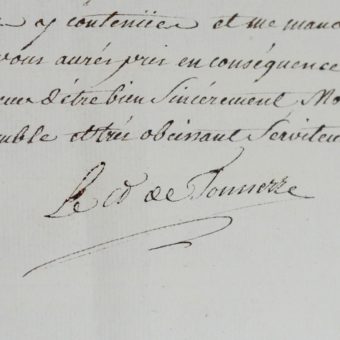 y contenüee et me manc
vous aurés pris en conséquence
d'être bien Sincérement Mo
umble et très obeissant Serviteu
Le cte de Tonnerre